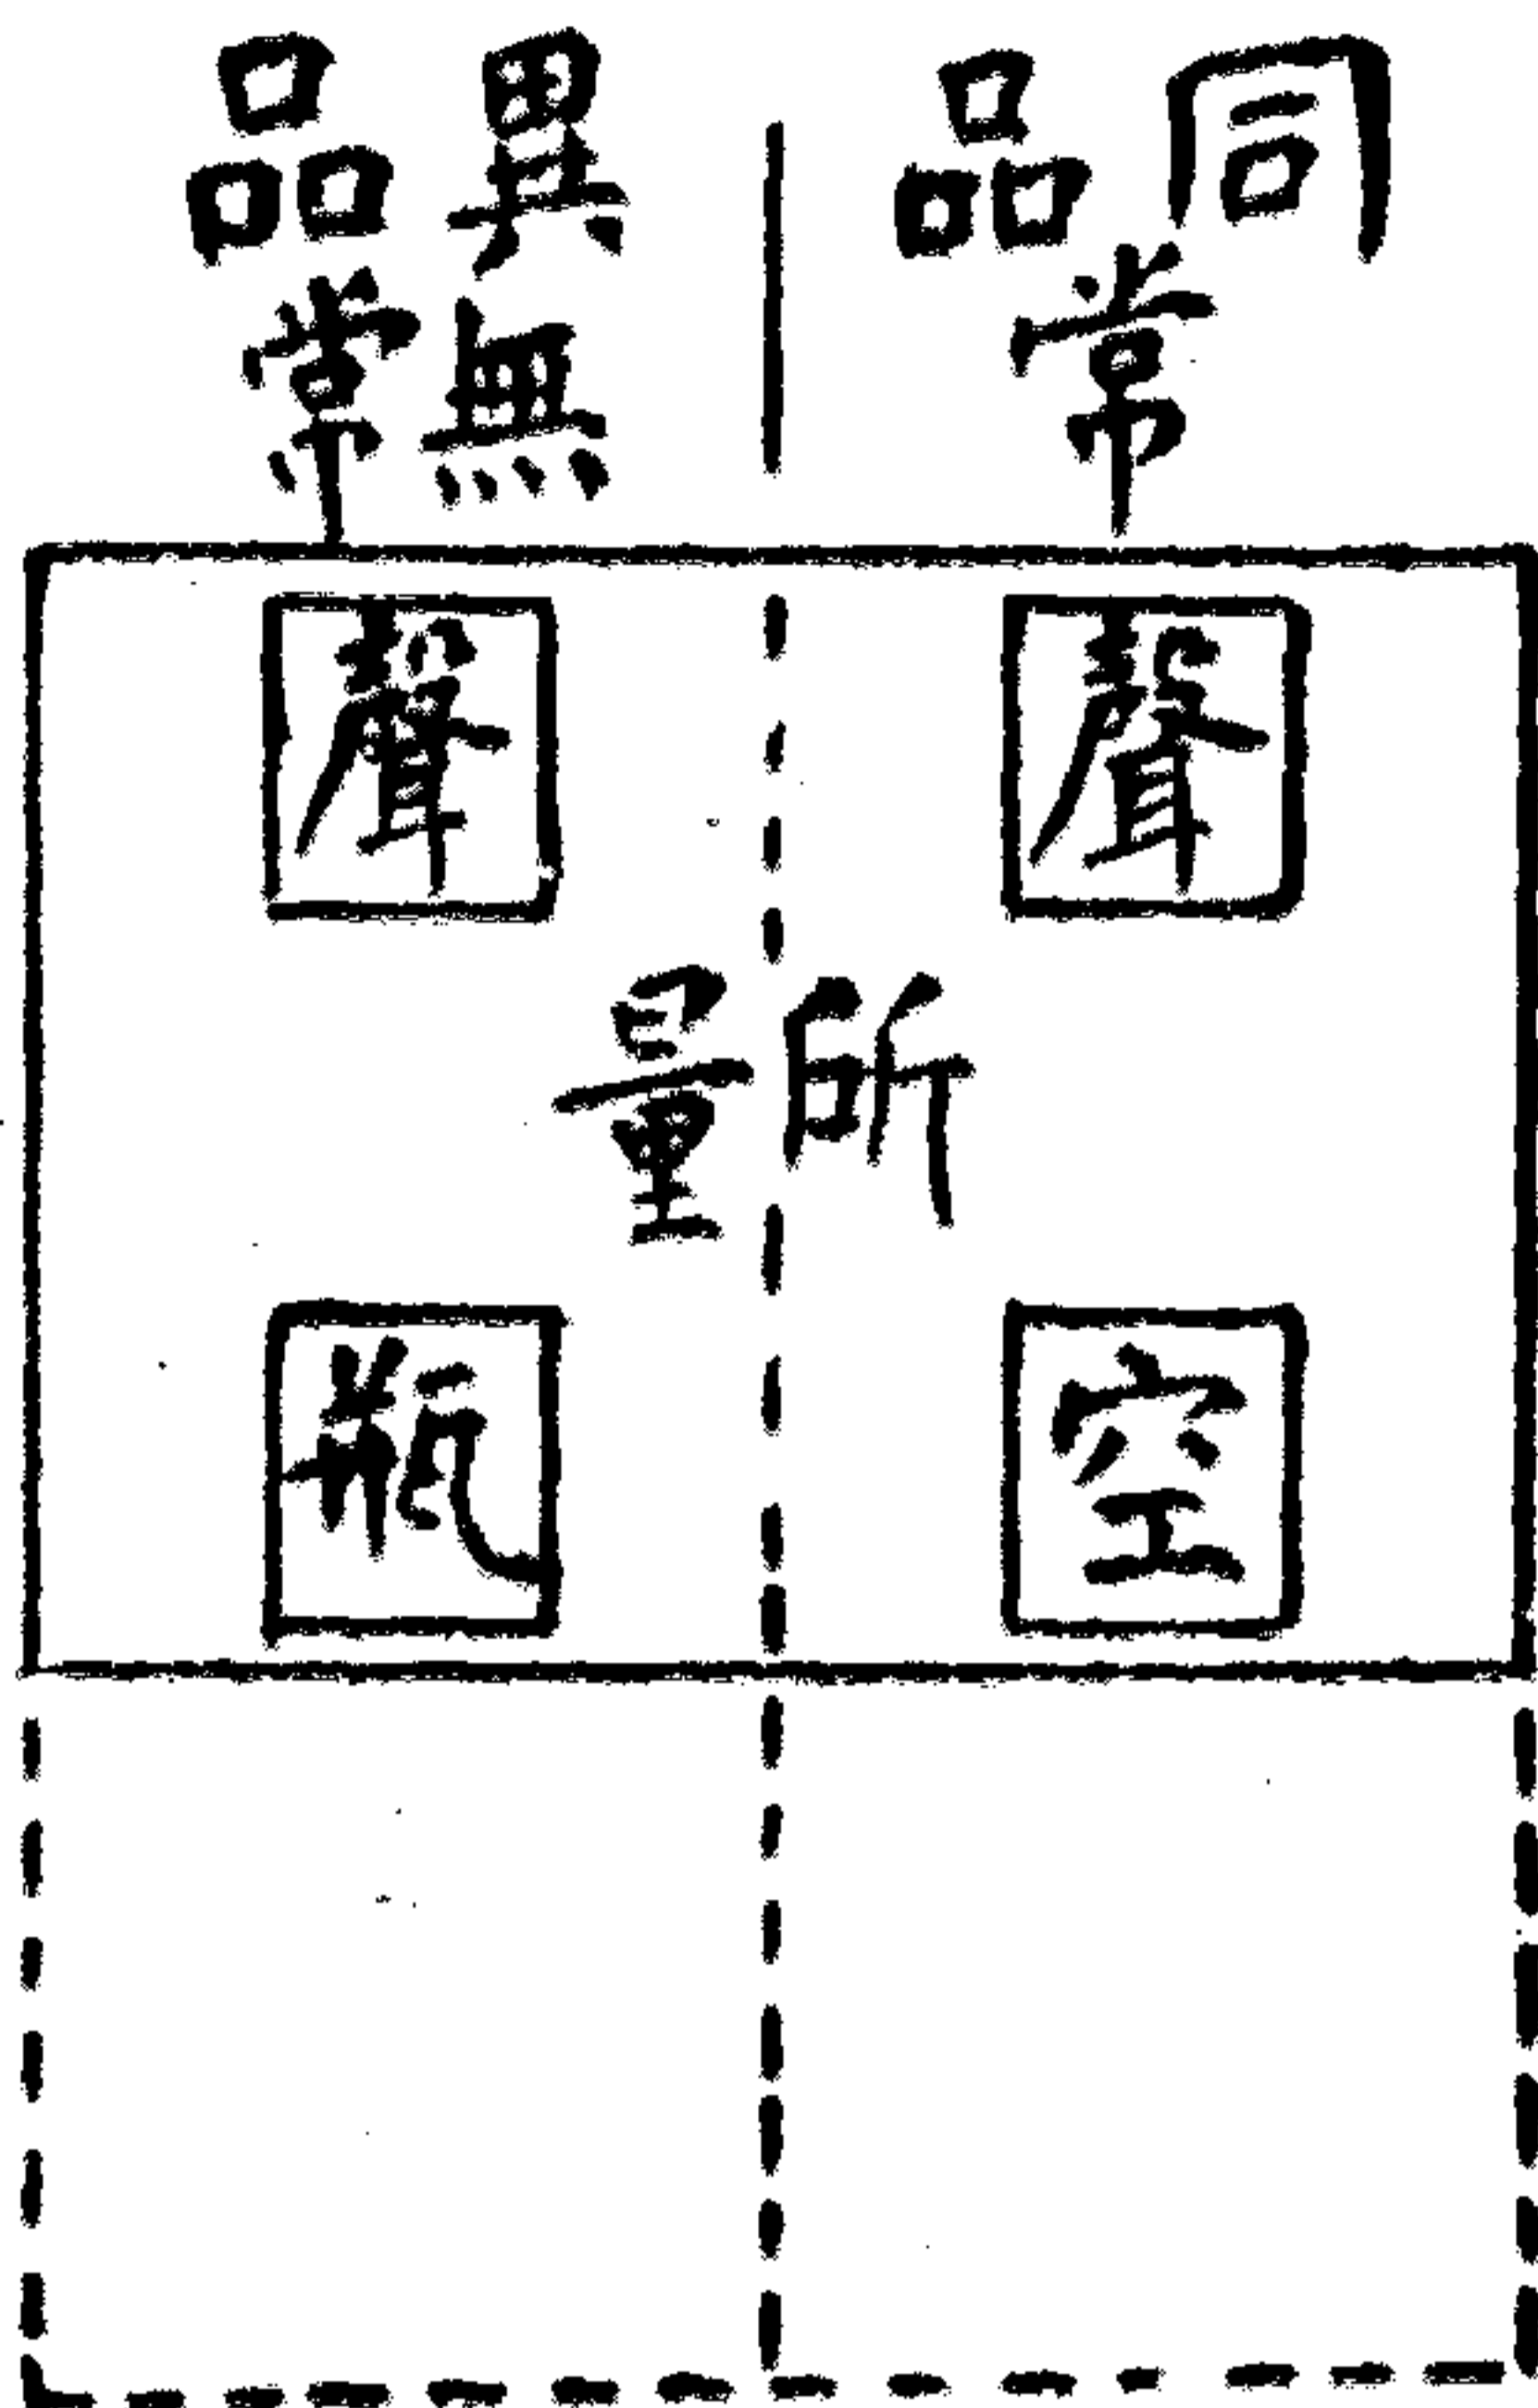 同品
常
異品
無常
聲
聲
所量
空
瓶